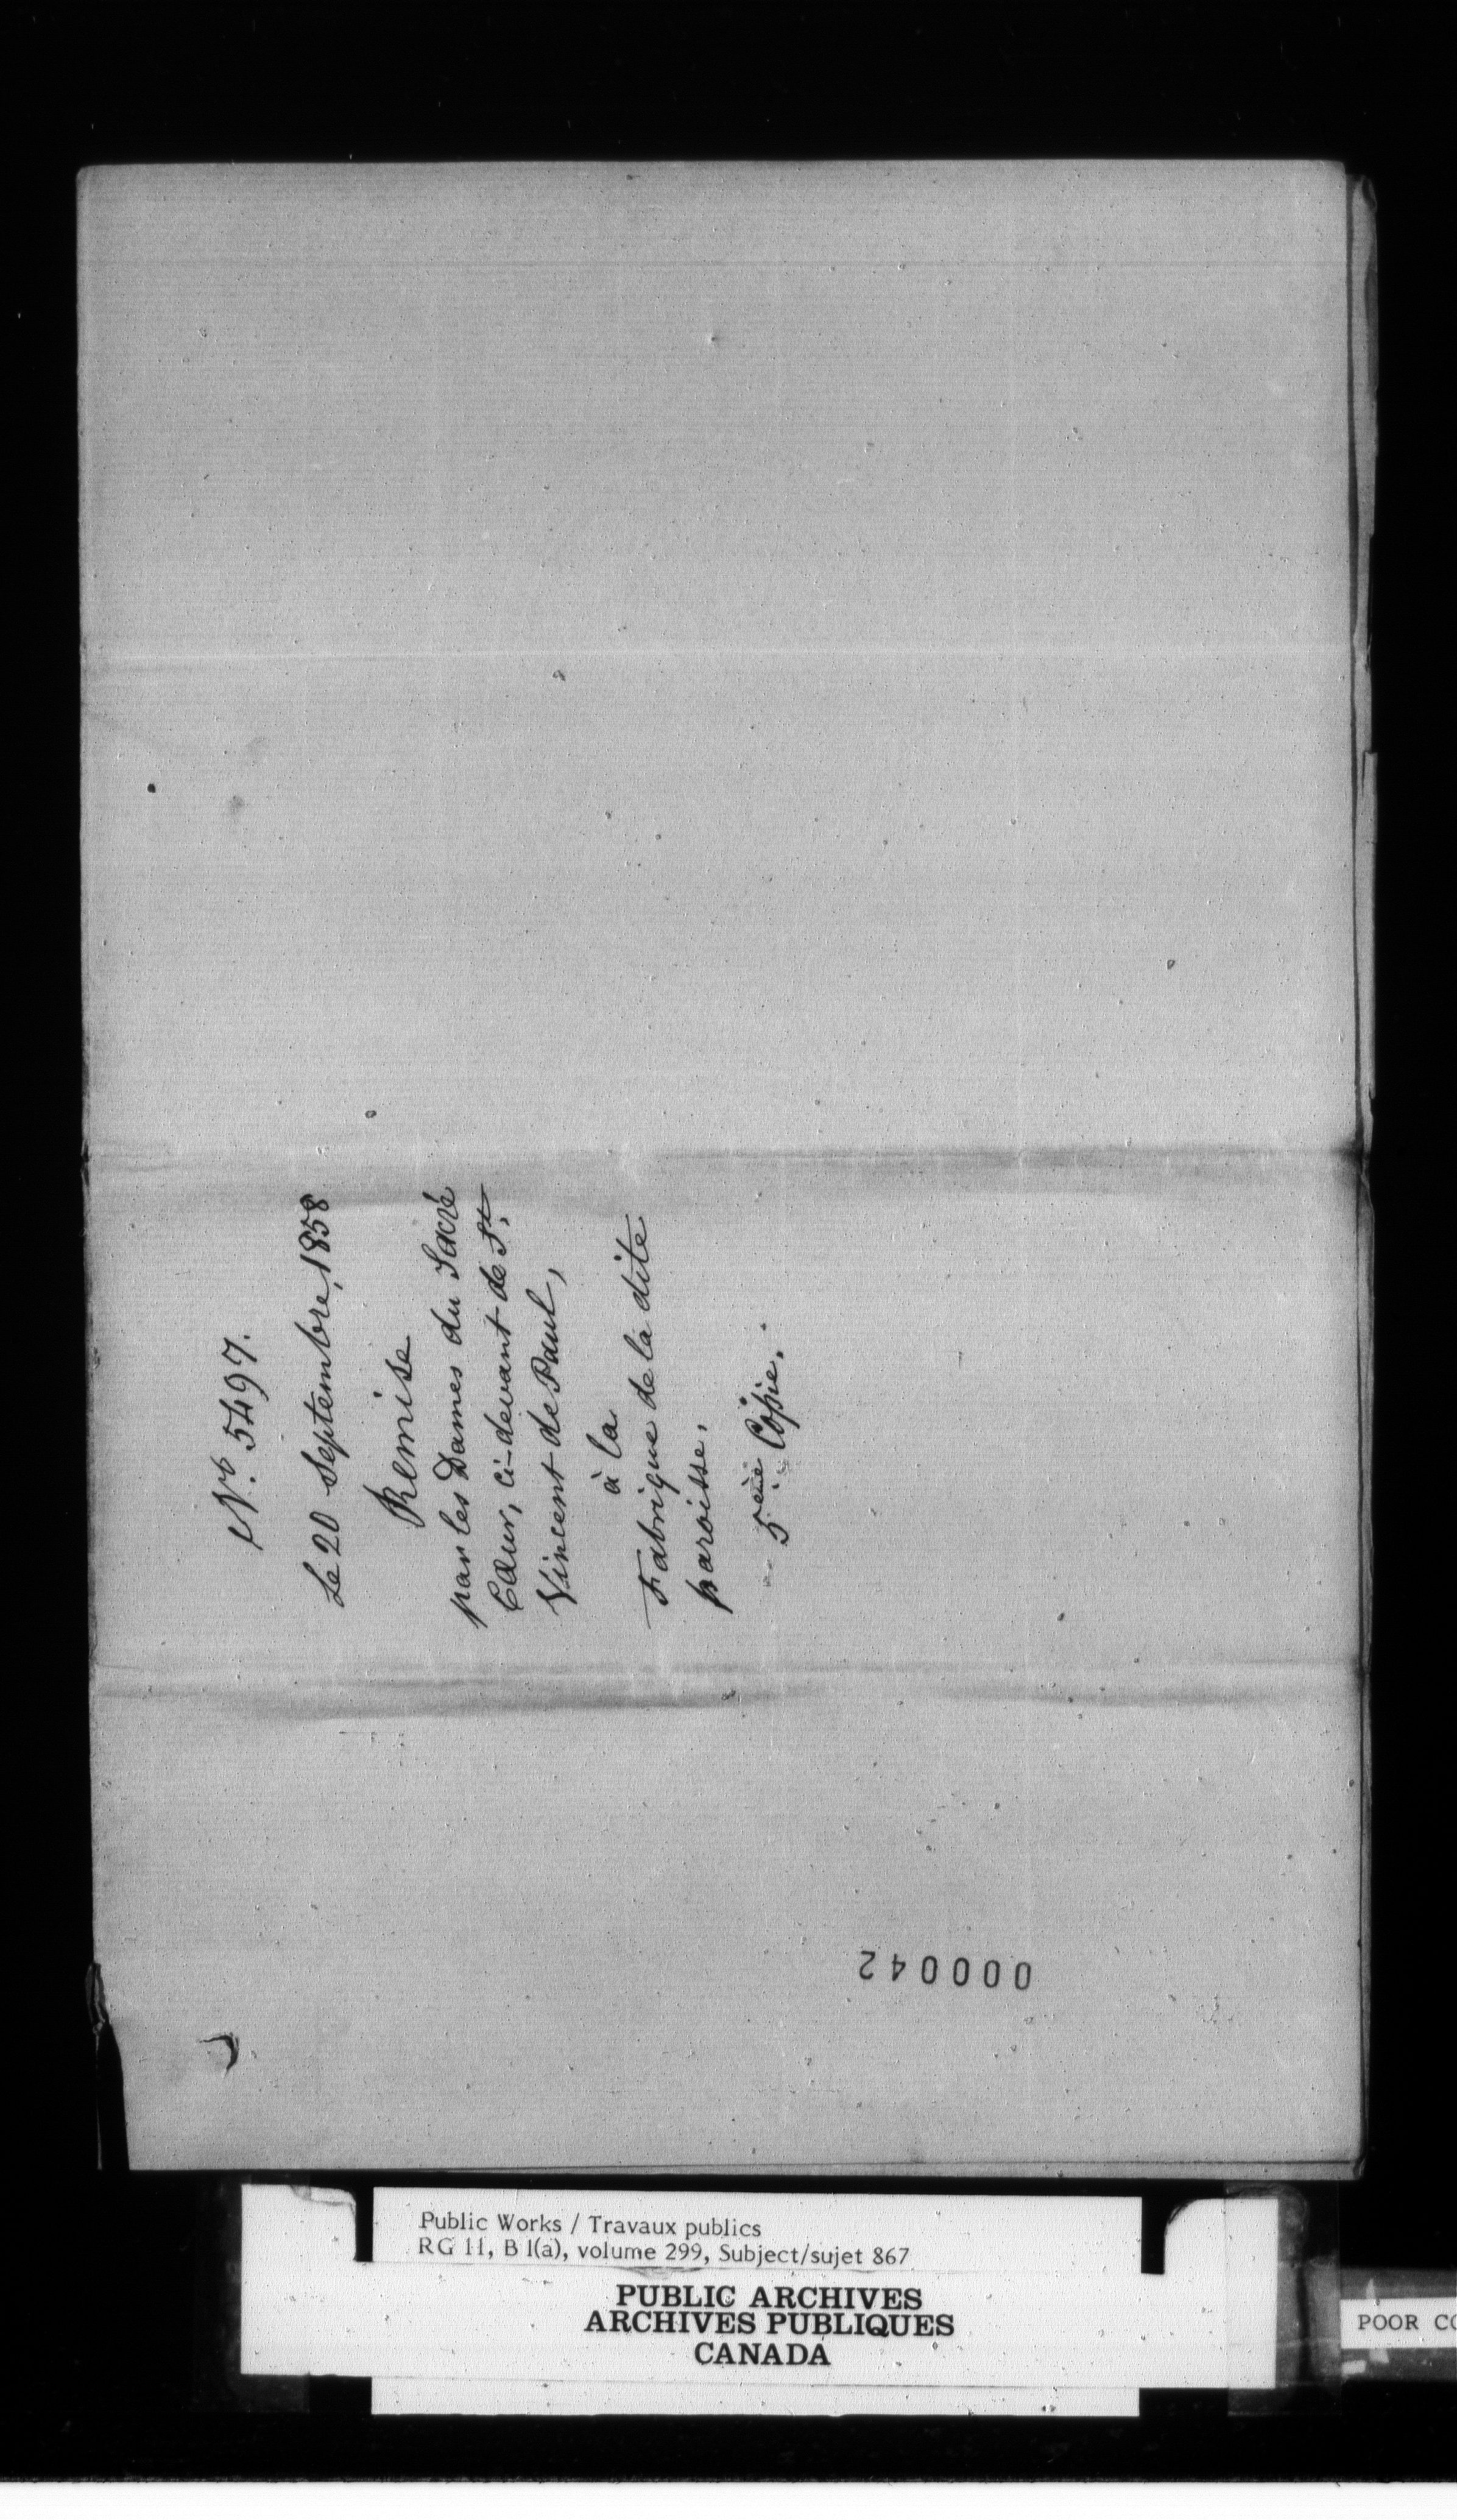 No. 5497.
Le 20 Septembre, 1858
Remise
par les Dames du Sacré
Cœur, ci-devant de St.
Vincent de Paul,
à la
Fabrique de la dite
paroisse.
5ème Copie.
000042
Public Works / Travaux publics
RG 11, B 1(a), volume 299, Subject/sujet 867
PUBLIC ARCHIVES
ARCHIVES PUBLIQUES
CANADA
POOR CO